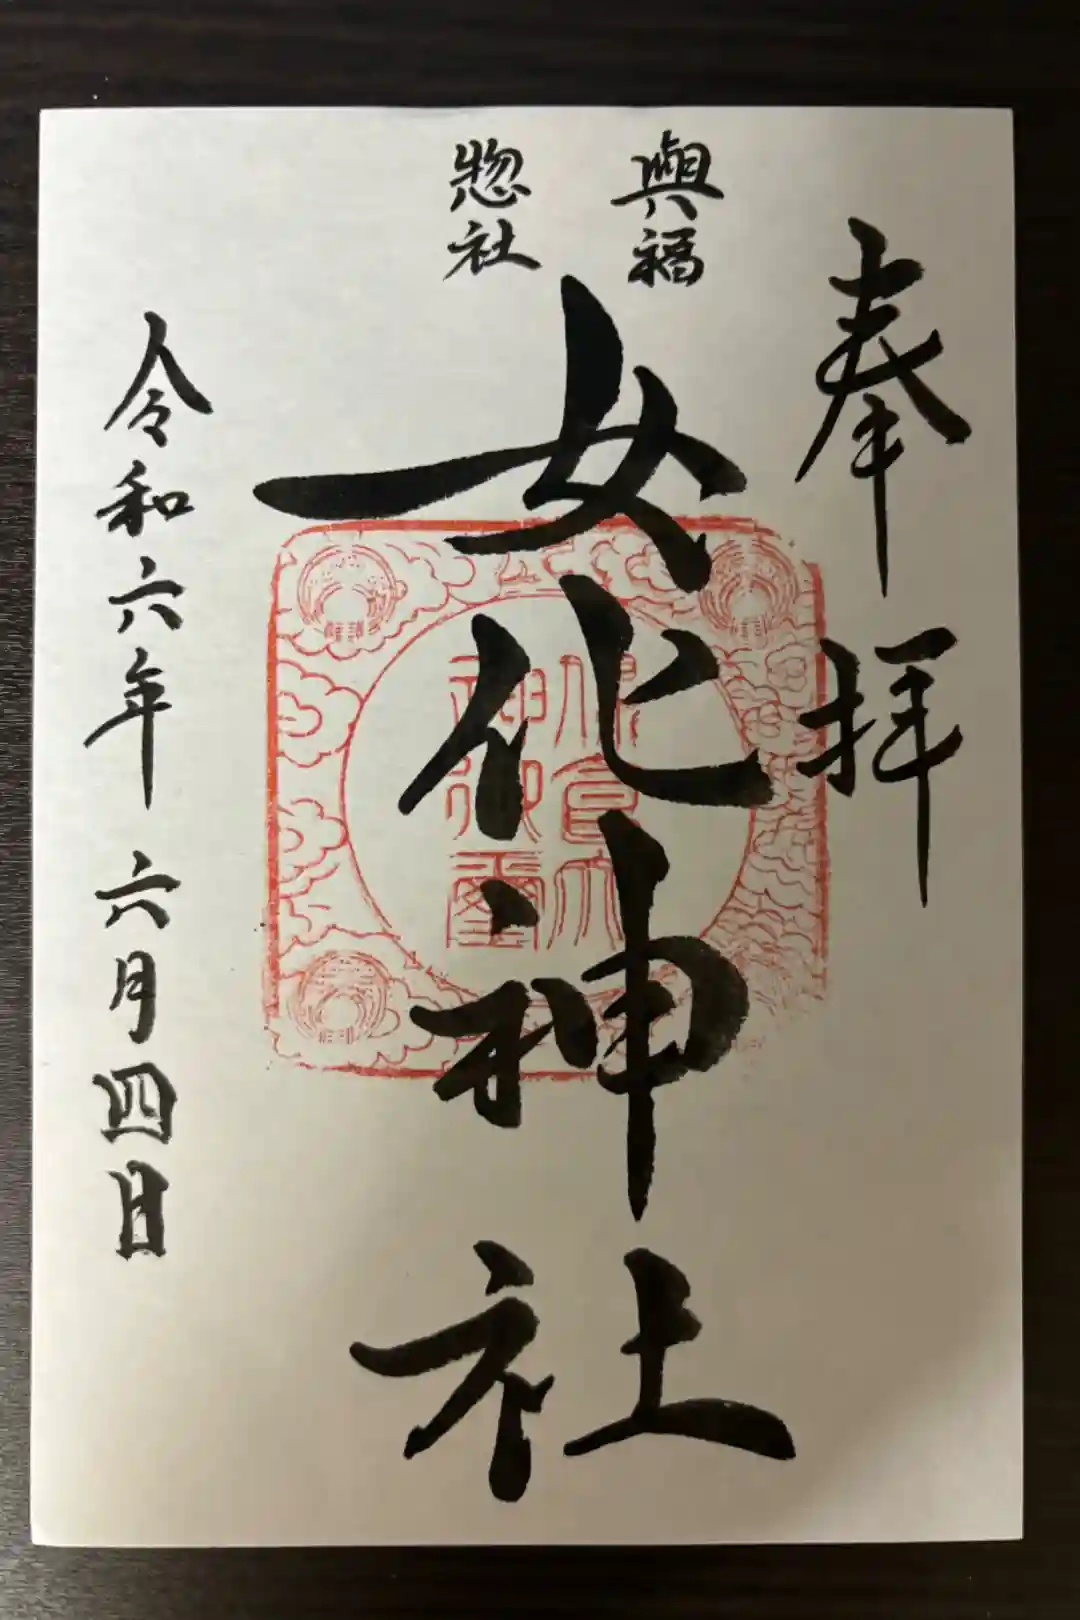 奉拝
與福
惣社
女化神社
令和六年六月四日